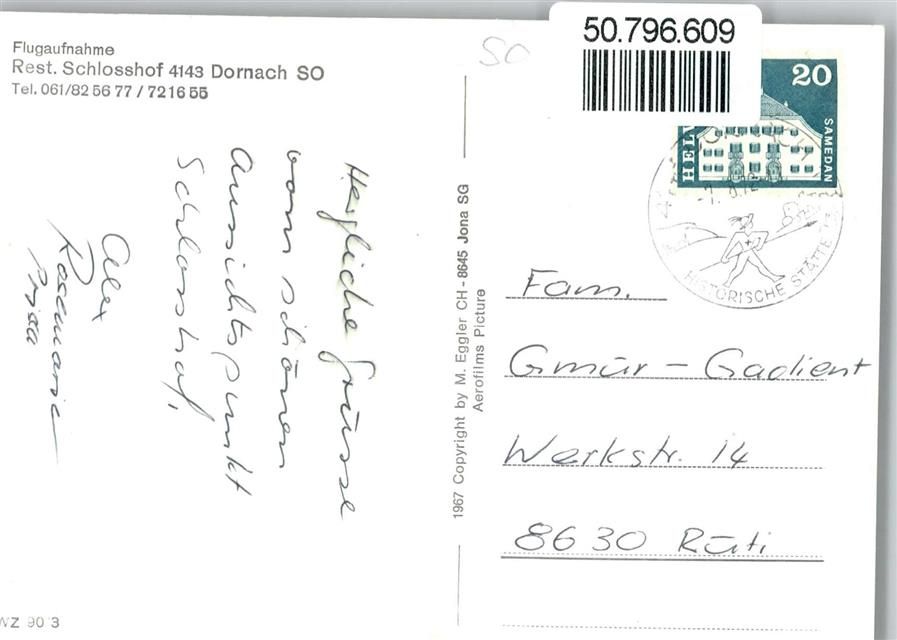 Flugaufnahme
Rest. Schlosshof 4143 Dornach SO
Tel. 061/82 56 77 / 72 16 55
Herzliche Grüsse
vom schönen
Aussichtspunkt
Schlosshof,
Alex
Rosemarie
1967 Copyright by M. Eggler CH-8645 Jona SG
Aerofilms Picture
SO
50.796.609
20
HEL
SAMEDAN
HISTORISCHE STÄTTE
Fam.
Gmür - Gadient
Werkstr. 14
8630 Rüti
WZ 90 3